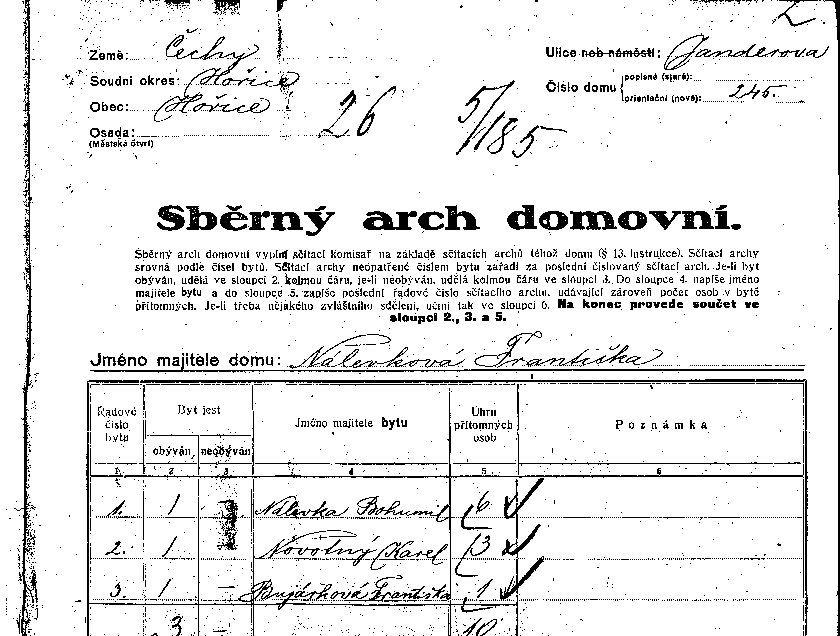 2.
Země: Čechy
Ulice neb náměstí: Janderova
Soudní okres: Hořice
popisné (staré):
Číslo domu
orientační (nové): 245.
Obec: Hořice
26
5/185
Osada:
(Městská čtvrť)
Sběrný arch domovní.
Sběrný arch domovní vyplní sčítací komisař na základě sčítacích archů téhož domu (§ 13. instrukce). Sčítací archy
srovná podle čísel bytů. Sčítací archy neopatřené číslem bytu zařadí za poslední číslovaný sčítací arch. Je-li byt
obýván, udělá ve sloupci 2. kolmou čáru, je-li neobýván, udělá kolmou čáru ve sloupci 3. Do sloupce 4. napíše jméno
majitele bytu a do sloupce 5. zapíše poslední řadové číslo sčítacího archu, udávající zároveň počet osob v bytě
přítomných. Je-li třeba nějakého zvláštního sdělení, učiní tak ve sloupci 6. Na konec provede součet ve
sloupci 2., 3. a 5.
Jméno majitele domu: Nálevková Františka
Řadové číslo bytu
Byt jest
obýván
neobýván
Jméno majitele bytu
Úhrn přítomných osob
Poznámka
1. 2 3 4 5 6
1. 1 Nálevka Bohumil 6
2. 1 Novotný Karel 3
3. 1 — Františka 1
3 10